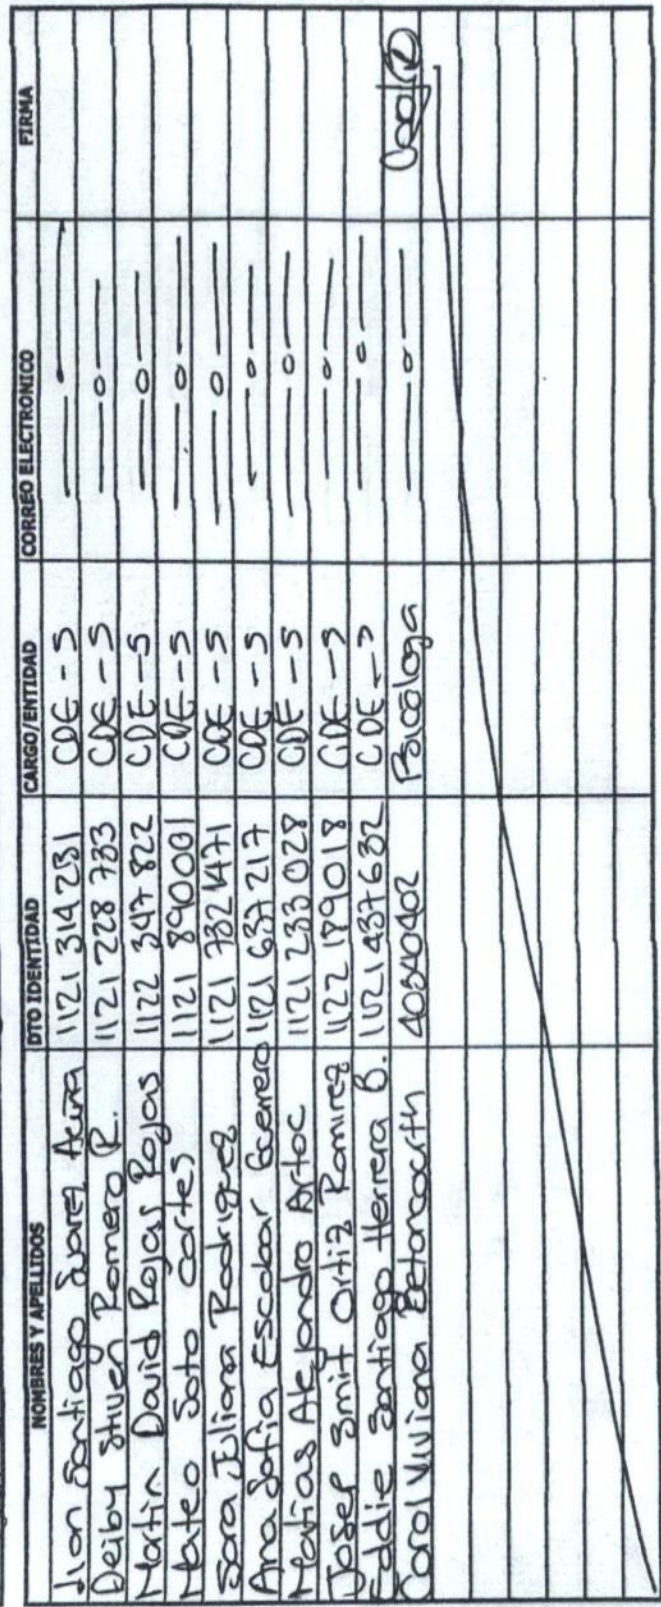 NOMBRES Y APELLIDOS DTO IDENTIDAD CARGO/ENTIDAD CORREO ELECTRONICO FIRMA
Jhon Santiago Suarez Acuña 1121 314 231 CDE-S
Deiby Stiven Romero R. 1121 228 733 CDE-S
Martin David Rojas Rojas 1122 347 822 CDE-S
Mateo Soto Cortes 1121 890001 CDE-S
Sara Juliana Rodriguez 1121 7321471 CDE-S
Ana Sofia Escobar Guerrero 1121 637 217 CDE-S
Matias Alejandro Artoc 1121 233 028 CDE-S
Josep Smit Ortiz Ramirez 1122 189018 CDE-S
Eddie Santiago Herrera B. 1121 437632 CDE-S
Carol Viviana Betancourth 40340402 Psicologa